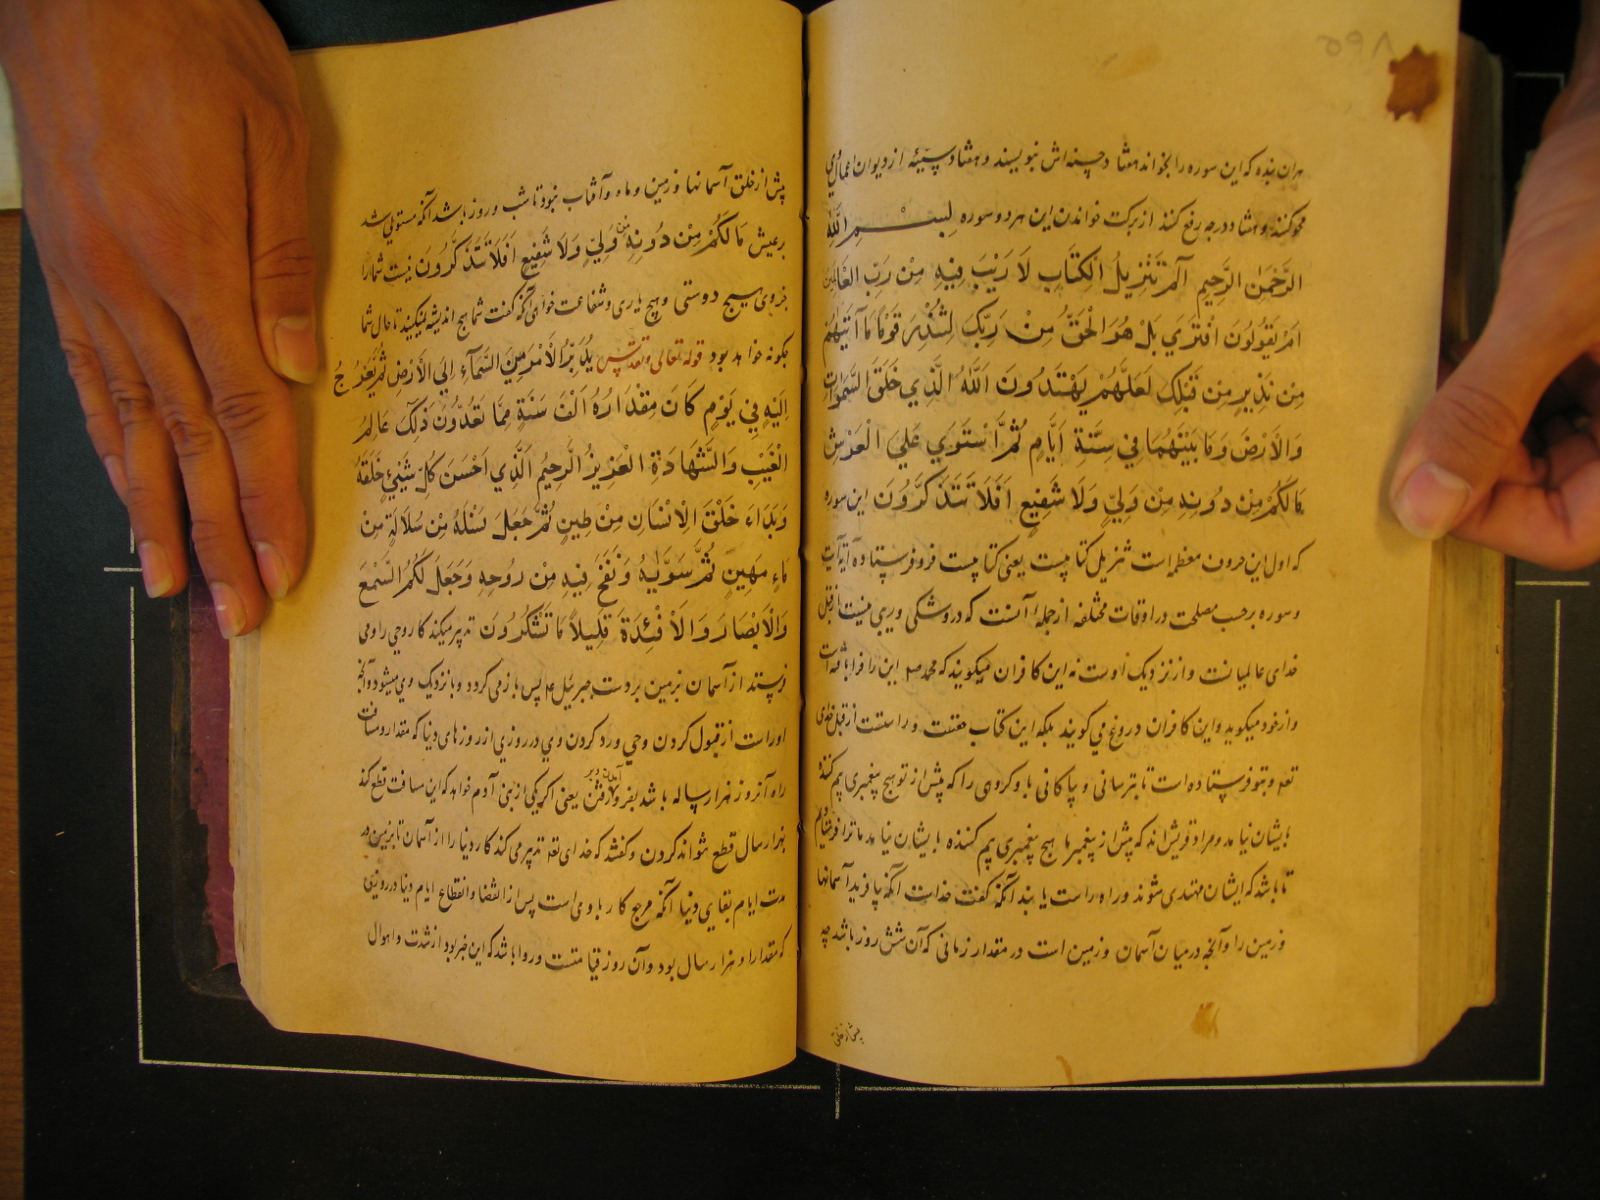 هران بنده که این سوره را بخواند هشتاد حسنه اش بنویسند و هشتاد سیئه از دیوان اعمال وی
محو کنند و هشتاد درجه رفع کنند از برکت خواندن این هر دو سوره بسم الله
الرَّحْمٰنِ الرَّحِیمِ الم تَنْزِیلُ الْکِتَابِ لَا رَیْبَ فِیهِ مِنْ رَبِّ الْعَالَمِینَ
اَمْ یَقُولُونَ افْتَرَیٰ بَلْ هُوَ الْحَقُّ مِنْ رَبِّکَ لِتُنْذِرَ قَوْمًا مَا اَتَیٰهُمْ
مِنْ نَذِیرٍ مِنْ قَبْلِکَ لَعَلَّهُمْ یَهْتَدُونَ اَللّٰهُ الَّذِی خَلَقَ السَّمٰوَاتِ
وَالْاَرْضَ وَمَا بَیْنَهُمَا فِی سِتَّةِ اَیَّامٍ ثُمَّ اسْتَوَیٰ عَلَی الْعَرْشِ
مَا لَکُمْ مِنْ دُونِهِ مِنْ وَلِیٍّ وَلَا شَفِیعٍ اَفَلَا تَتَذَکَّرُونَ این سوره
که اول این حروف معظم است تنزیل کتابیست یعنی کتابیست فرو فرستاده آیة آیت
و سوره برحسب مصلحت در اوقات مختلفه از جمله آنست که در وشکی و ریبی نیست از قبل
خدای عالمیانست و از نزدیک اوست نه این کافران میگویند که محمد این را فرا بافته است
و از خود میگوید و این کافران دروغ می گویند بلکه این کتاب حقست و راستست از قبل خدای
تعه و بتو فرستاده است تا بترسانی و پاکانی با و کروی را که پیش از تو هیچ پیغمبری بیم کننده
بایشان نیامد و مراد قریش اند که پیش از پیغمبر ما هیچ پیغمبری بیم کننده بایشان نیامد ما ترا فرستادیم
تا باشد که ایشان مهتدی شوند و راه راست یابند آنکه گفت خداست آنکه بیافرید آسمانها
و زمین را و آنچه در میان آسمان و زمین است در مقدار زمانی که آن شش روز باشد چه
پیش از خلق
پیش از خلق آسمانها و زمین و ماه و آفتاب نبود تا شب و روز باشد آنکه مستوی شد
بر عرش مَا لَکُمْ مِنْ دُونِهِ مِنْ وَلِیٍّ وَلَا شَفِیعٍ اَفَلَا تَتَذَکَّرُونَ نیست شما را
جز وی هیچ دوستی و هیچ یاری و شفاعت خواهی آنکه گفت شما هیچ اندیشه نمیکنید تا حال شما
چگونه خواهد بود قوله تعالی وتقدس یُدَبِّرُ الْاَمْرَ مِنَ السَّمَآءِ اِلَی الْاَرْضِ ثُمَّ یَعْرُجُ
اِلَیْهِ فِی یَوْمٍ کَانَ مِقْدَارُهُ اَلْفَ سَنَةٍ مِمَّا تَعُدُّونَ ذٰلِکَ عَالِمُ
الْغَیْبِ وَالشَّهَادَةِ الْعَزِیزُ الرَّحِیمُ اَلَّذِی اَحْسَنَ کُلَّ شَیْئٍ خَلَقَهُ
وَبَدَاءَ خَلْقَ الْاِنْسَانِ مِنْ طِینٍ ثُمَّ جَعَلَ نَسْلَهُ مِنْ سُلَالَةٍ مِنْ
مَاءٍ مَهِینٍ ثُمَّ سَوّٰیهُ وَنَفَخَ فِیهِ مِنْ رُوحِهِ وَجَعَلَ لَکُمُ السَّمْعَ
وَالْاَبْصَارَ وَالْاَفْئِدَةَ قَلِیلًا مَا تَشْکُرُونَ تدبیر میکند کار وحی را ومی
فرستد از آسمان بزمین بر دست جبرئیل پس باز می گردد و بانزدیک وی میشود و آنچه
او راست از قبول کردن وحی و رد کردن وی در روزی از روزهای دنیا که مقدار و مسافت
راه آنروز هزار ساله باشد بفرو آمدن و بر رفتن یعنی اگر یکی از بنی آدم خواهد که این مسافت قطع کند
بهزار سال قطع تواند کردن و گفتند که خدای تعه تدبیر می کند کار دنیا را از آسمان تا بزمین در
مدت ایام بقای دنیا آنکه مرجع کار با وی است پس از انقضا و انقطاع ایام دنیا در روزی
که مقدار او هزار سال بود و آن روز قیامتست و روا باشد که این خبر بود از شدت و اهوال